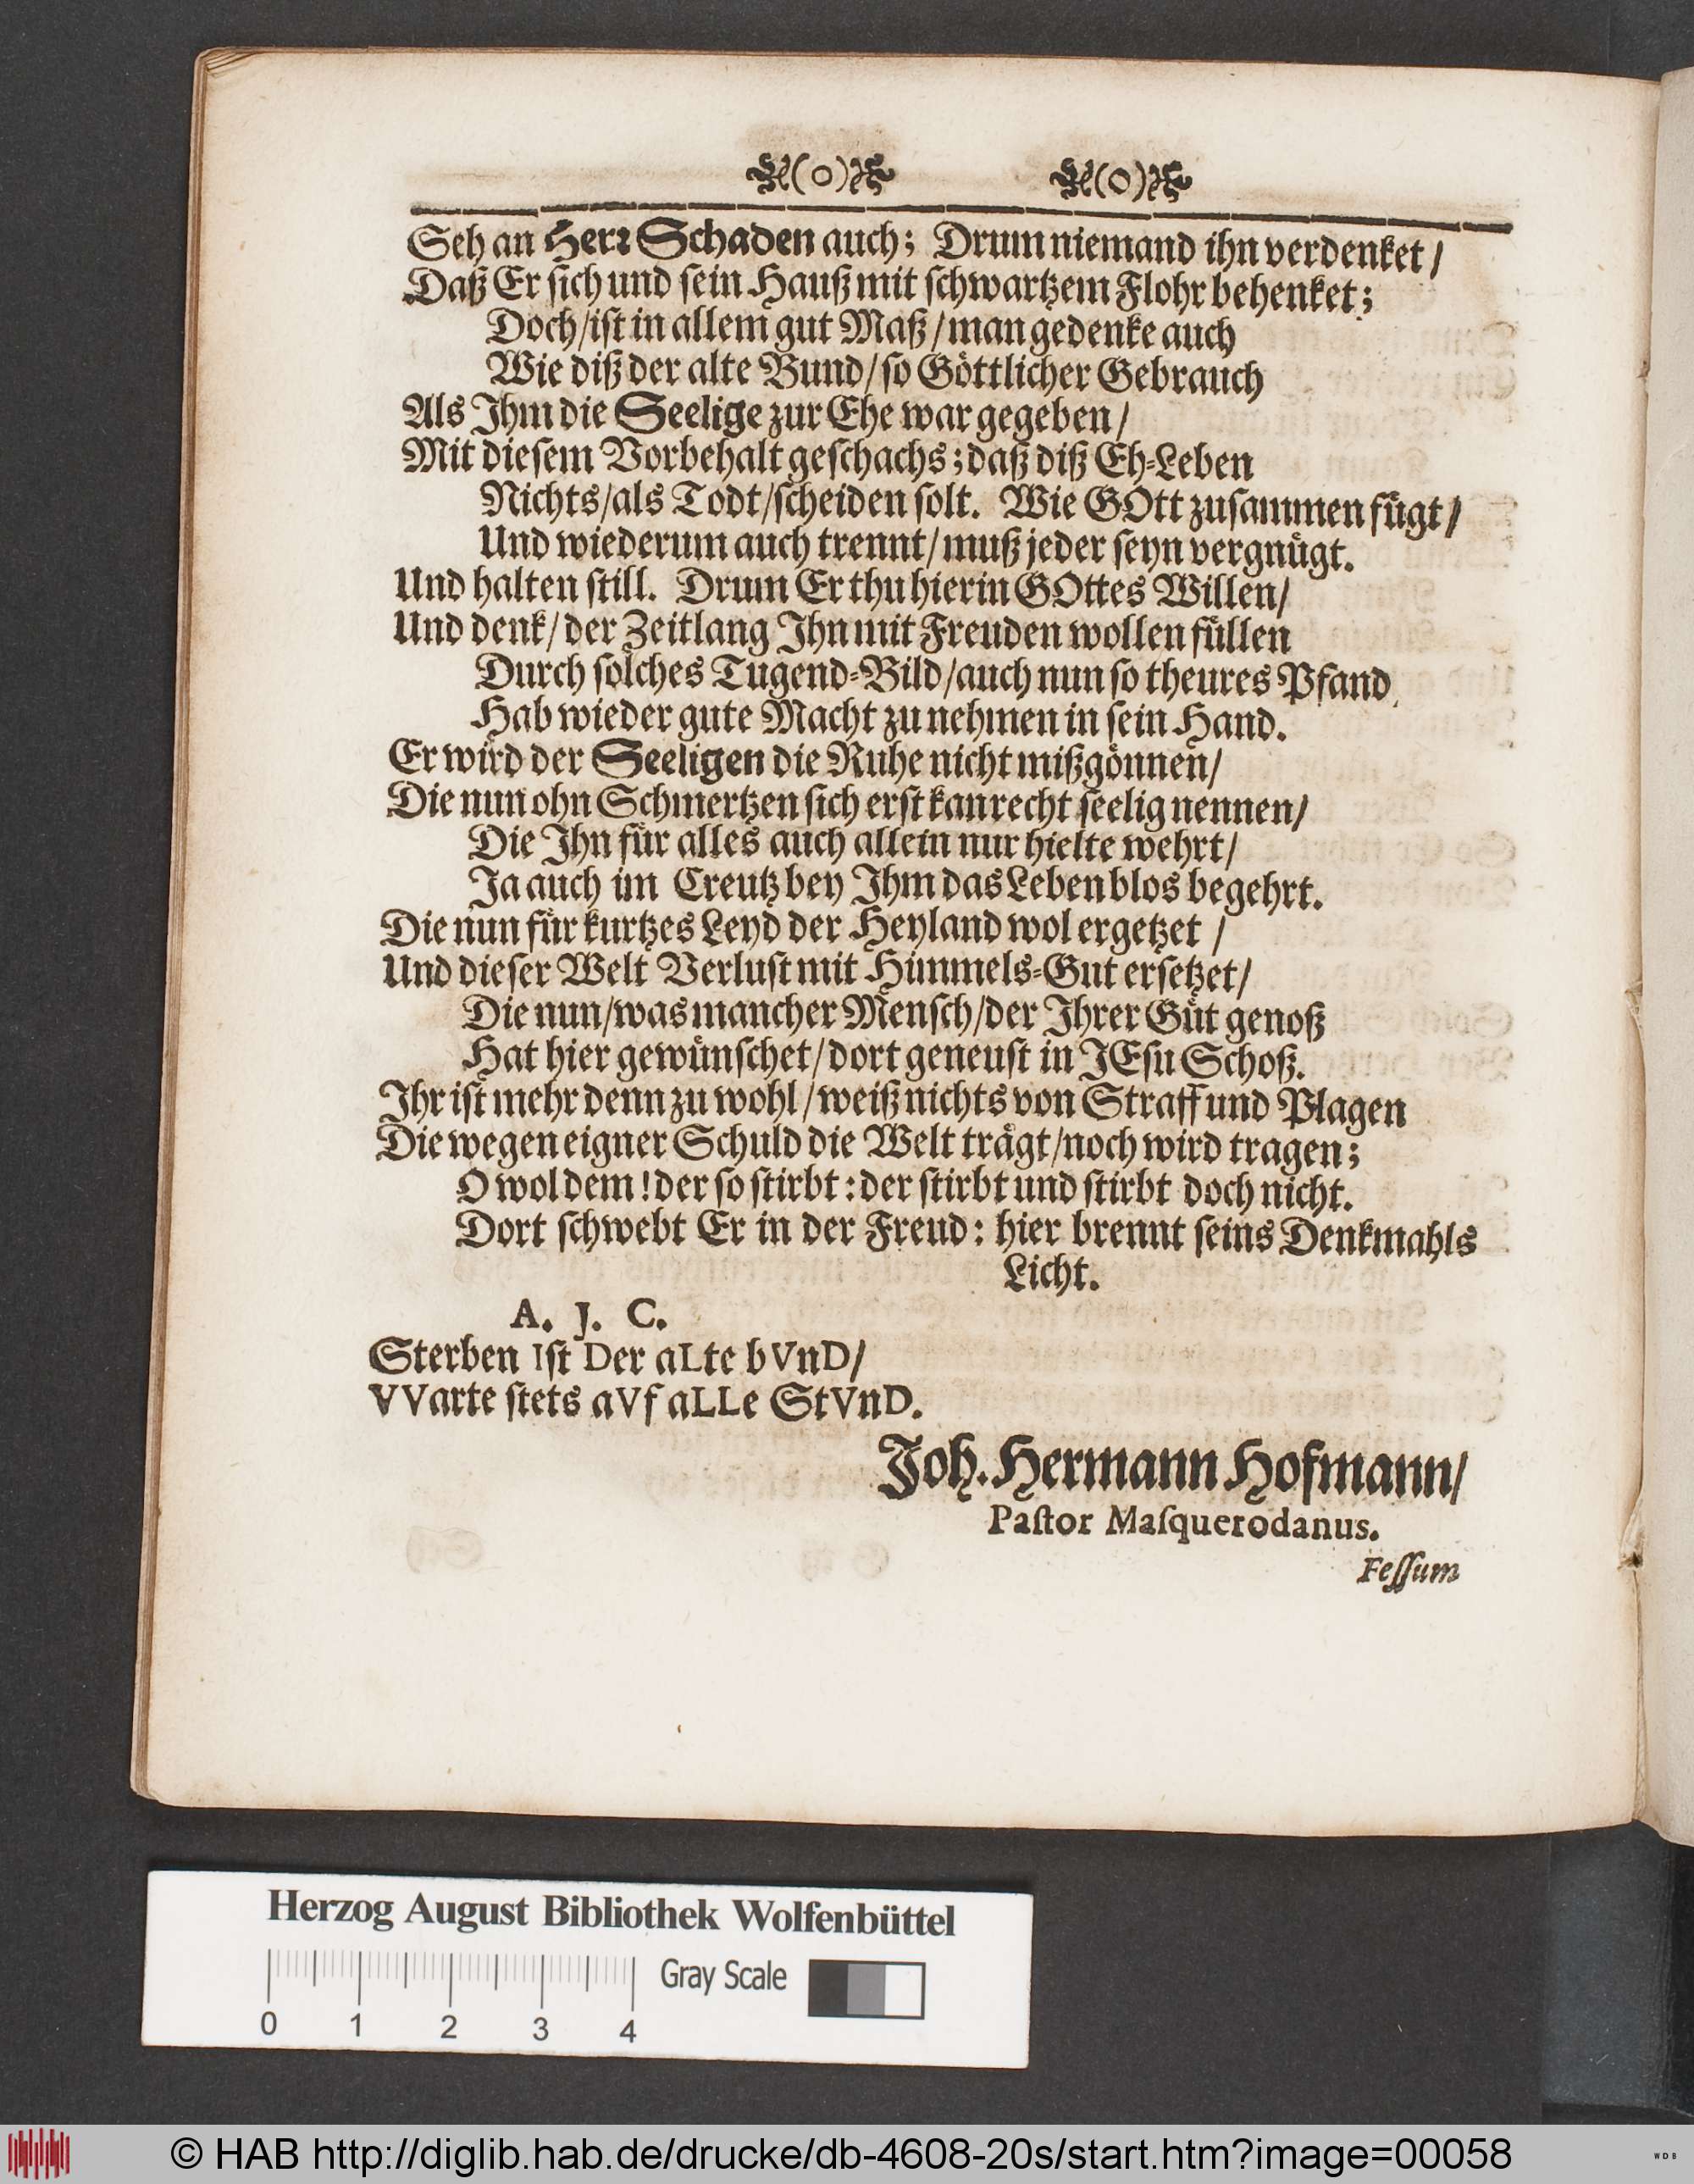 (o) (o)
Seh an Herr Schaden auch; Drum niemand ihn verdenket /
Daß Er sich und sein Hauß mit schwartzem Flohr behenket;
Doch/ist in allem gut Maß/man gedenke auch
Wie diß der alte Bund/so Göttlicher Gebrauch
Als Ihm die Seelige zur Ehe war gegeben/
Mit diesem Vorbehalt geschachs; daß diß Eh-Leben
Nichts/als Todt/scheiden solt. Wie GOtt zusammen fügt/
Und wiederum auch trennt/muß jeder seyn vergnügt.
Und halten still. Drum Er thu hierin GOttes Willen/
Und denk/der Zeitlang Ihn mit Freuden wollen füllen
Durch solches Tugend-Bild/auch nun so theures Pfand
Hab wieder gute Macht zu nehmen in sein Hand.
Er wird der Seeligen die Ruhe nicht mißgönnen/
Die nun ohn Schmertzen sich erst kan recht seelig nennen/
Die Ihn für alles auch allein nur hielte wehrt/
Ja auch im Creutz bey Ihm das Leben blos begehrt.
Die nun für kurtzes Leyd der Heyland wol ergetzet /
Und dieser Welt Verlust mit Himmels-Gut ersetzet/
Die nun/was mancher Mensch/der Ihrer Güt genoß
Hat hier gewünschet/dort geneust in JEsu Schoß.
Ihr ist mehr denn zu wohl/weiß nichts von Straff und Plagen
Die wegen eigner Schuld die Welt trägt/noch wird tragen;
O wol dem! der so stirbt: der stirbt und stirbt doch nicht.
Dort schwebt Er in der Freud: hier brennt seins Denkmahls
Licht.
A. J. C.
Sterben Ist Der aLte bVnD/
VVarte stets aVf aLLe StVnD.
Joh. Hermann Hofmann/
Pastor Masquerodanus.
Fessum
Herzog August Bibliothek Wolfenbüttel
Gray Scale
0 1 2 3 4
© HAB http://diglib.hab.de/drucke/db-4608-20s/start.htm?image=00058
WDB